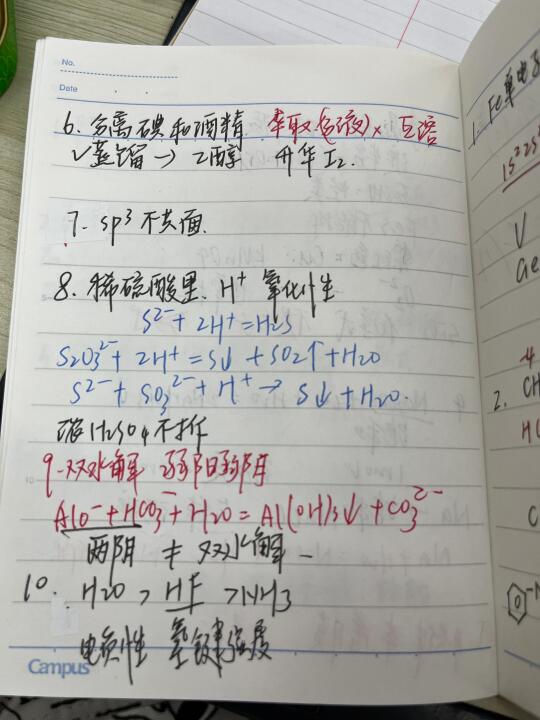 No.
Date
6. 分离碘和酒精 萃取(分液)× 互溶
√蒸馏 → 乙醇 升华 I₂.
7. sp³ 不共面.
8. 稀硫酸里. H⁺ 氧化性
S²⁻ + 2H⁺ = H₂S
S₂O₃²⁻ + 2H⁺ = S↓ + SO₂↑ + H₂O
S²⁻ + SO₃²⁻ + H⁺ → S↓ + H₂O.
H₂SO₄ 不
9. 双水解 弱阳弱阴
AlO⁻ + HCO₃⁻ + H₂O = Al(OH)₃↓ + CO₃²⁻
两阴 ≠ 双水解
10. H₂O > HF > NH₃
电负性 氢键强度
Campus
1. Fe 单电子
1s²2s²
V
Ge
2. CH
H
C